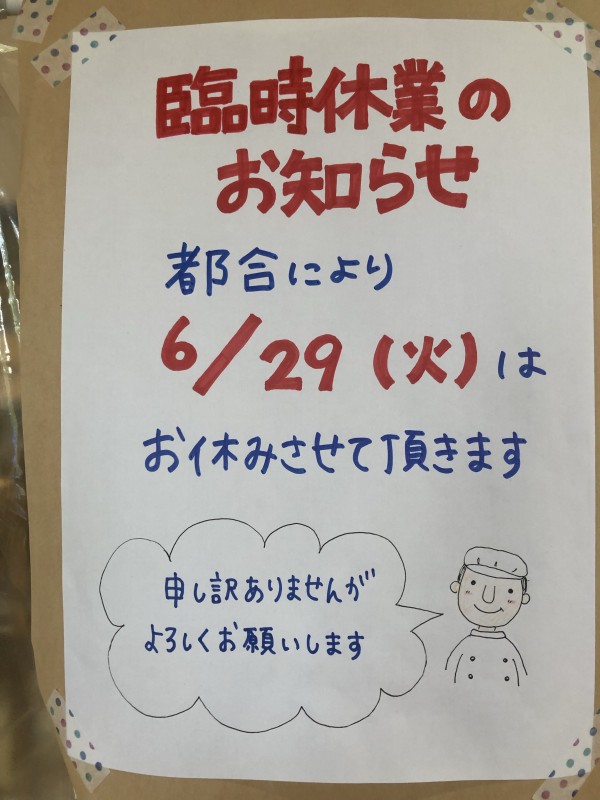 臨時休業の
お知らせ
都合により
6/29(火)は
お休みさせて頂きます
申し訳ありませんが
よろしくお願いします